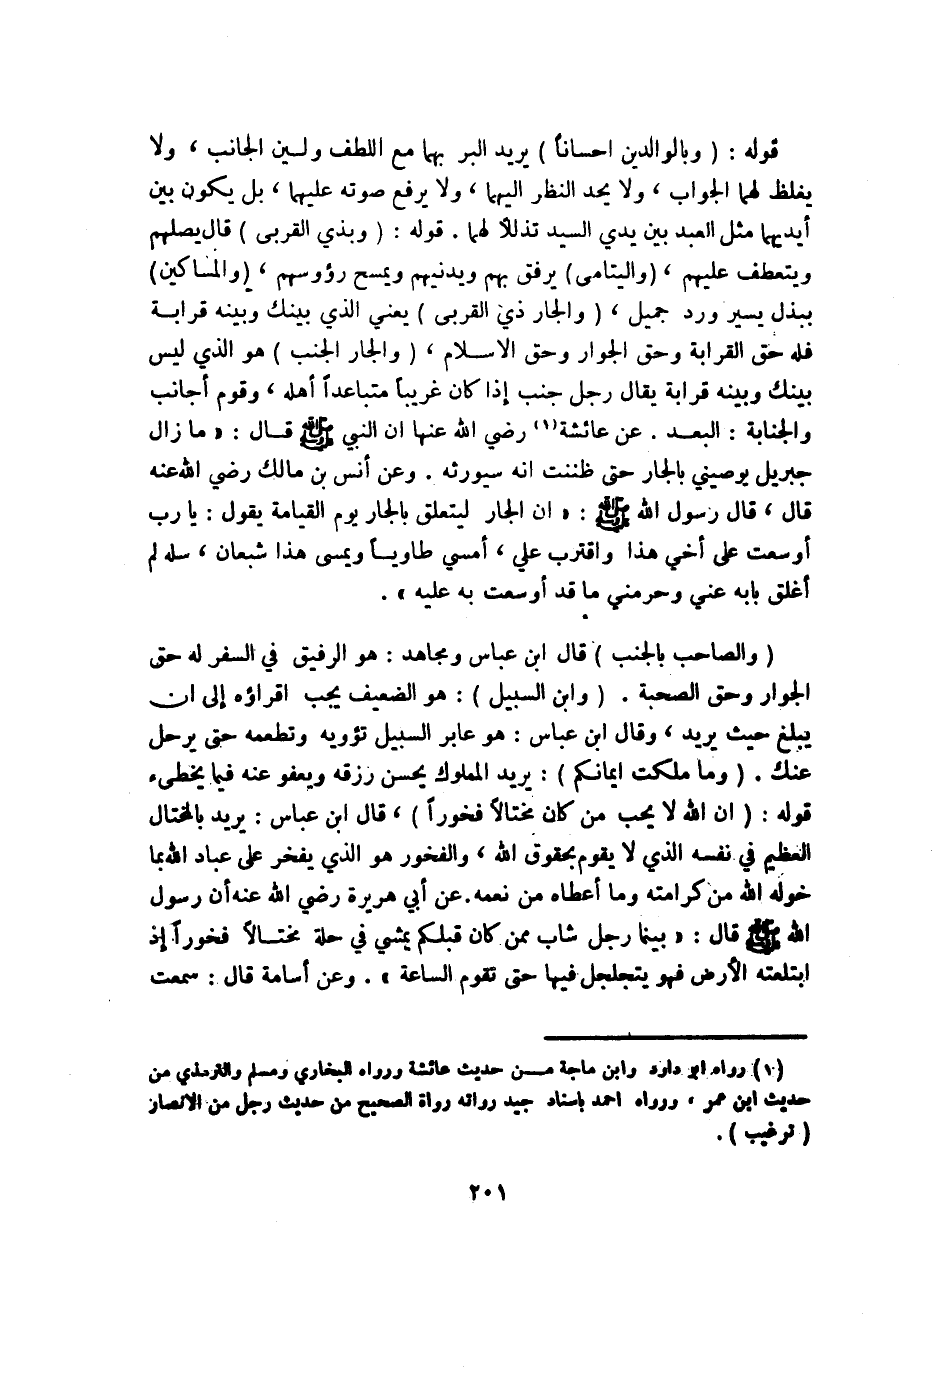 قوله : ( وبالوالدين احساناً ) يريد البر بهما مع اللطف ولين الجانب ، ولا
يغلظ لهما الجواب ، ولا يحد النظر اليهما ، ولا يرفع صوته عليهما ، بل يكون بين
أيديهما مثل العبد بين يدي السيد تذللاً لهما . قوله : ( وبذي القربى ) قال يصلهم
ويتعطف عليهم ، (واليتامى) يرفق بهم ويدنيهم ويمسح رؤوسهم ، (والمساكين)
ببذل يسير ورد جميل ، ( والجار ذي القربى ) يعني الذي بينك وبينه قرابة
فله حق القرابة وحق الجوار وحق الاسلام ، ( والجار الجنب ) هو الذي ليس
بينك وبينه قرابة يقال رجل جنب إذا كان غريباً متباعداً أهله ، وقوم أجانب
والجنابة : البعد . عن عائشة(١) رضي الله عنها ان النبي ﷺ قال : « ما زال
جبريل يوصيني بالجار حتى ظننت انه سيورثه . وعن أنس بن مالك رضي الله عنه
قال ، قال رسول الله ﷺ : « ان الجار ليتعلق بالجار يوم القيامة يقول : يا رب
أوسعت على أخي هذا واقترب علي ، أمسي طاوياً ويمسى هذا شبعان ، سله لم
أغلق بابه عني وحرمني ما قد أوسعت به عليه » .
( والصاحب بالجنب ) قال ابن عباس ومجاهد : هو الرفيق في السفر له حق
الجوار وحق الصحبة . ( وابن السبيل ) : هو الضعيف يجب اقراؤه إلى ان
يبلغ حيث يريد ، وقال ابن عباس : هو عابر السبيل تؤويه وتطعمه حتى يرحل
عنك . ( وما ملكت ايمانكم ) : يريد المملوك يحسن رزقه ويعفو عنه فيما يخطىء
قوله : ( ان الله لا يحب من كان مختالاً فخوراً ) ، قال ابن عباس : يريد بالمختال
العظيم في نفسه الذي لا يقوم بحقوق الله ، والفخور هو الذي يفخر على عباد الله بما
خوله الله من كرامته وما أعطاه من نعمه.عن أبي هريرة رضي الله عنه أن رسول
الله ﷺ قال : « بينما رجل شاب ممن كان قبلكم يمشي في حلة مختالاً فخوراً إذ
ابتلعته الأرض فهو يتجلجل فيها حتى تقوم الساعة » . وعن أسامة قال : سمعت
(١) رواه ابو داود وابن ماجة من حديث عائشة ورواه البخاري ومسلم والترمذي من
حديث ابن عمر ، ورواه احمد باسناد جيد رواته رواة الصحيح من حديث رجل من الانصار
( ترغيب ) .
٢٠١